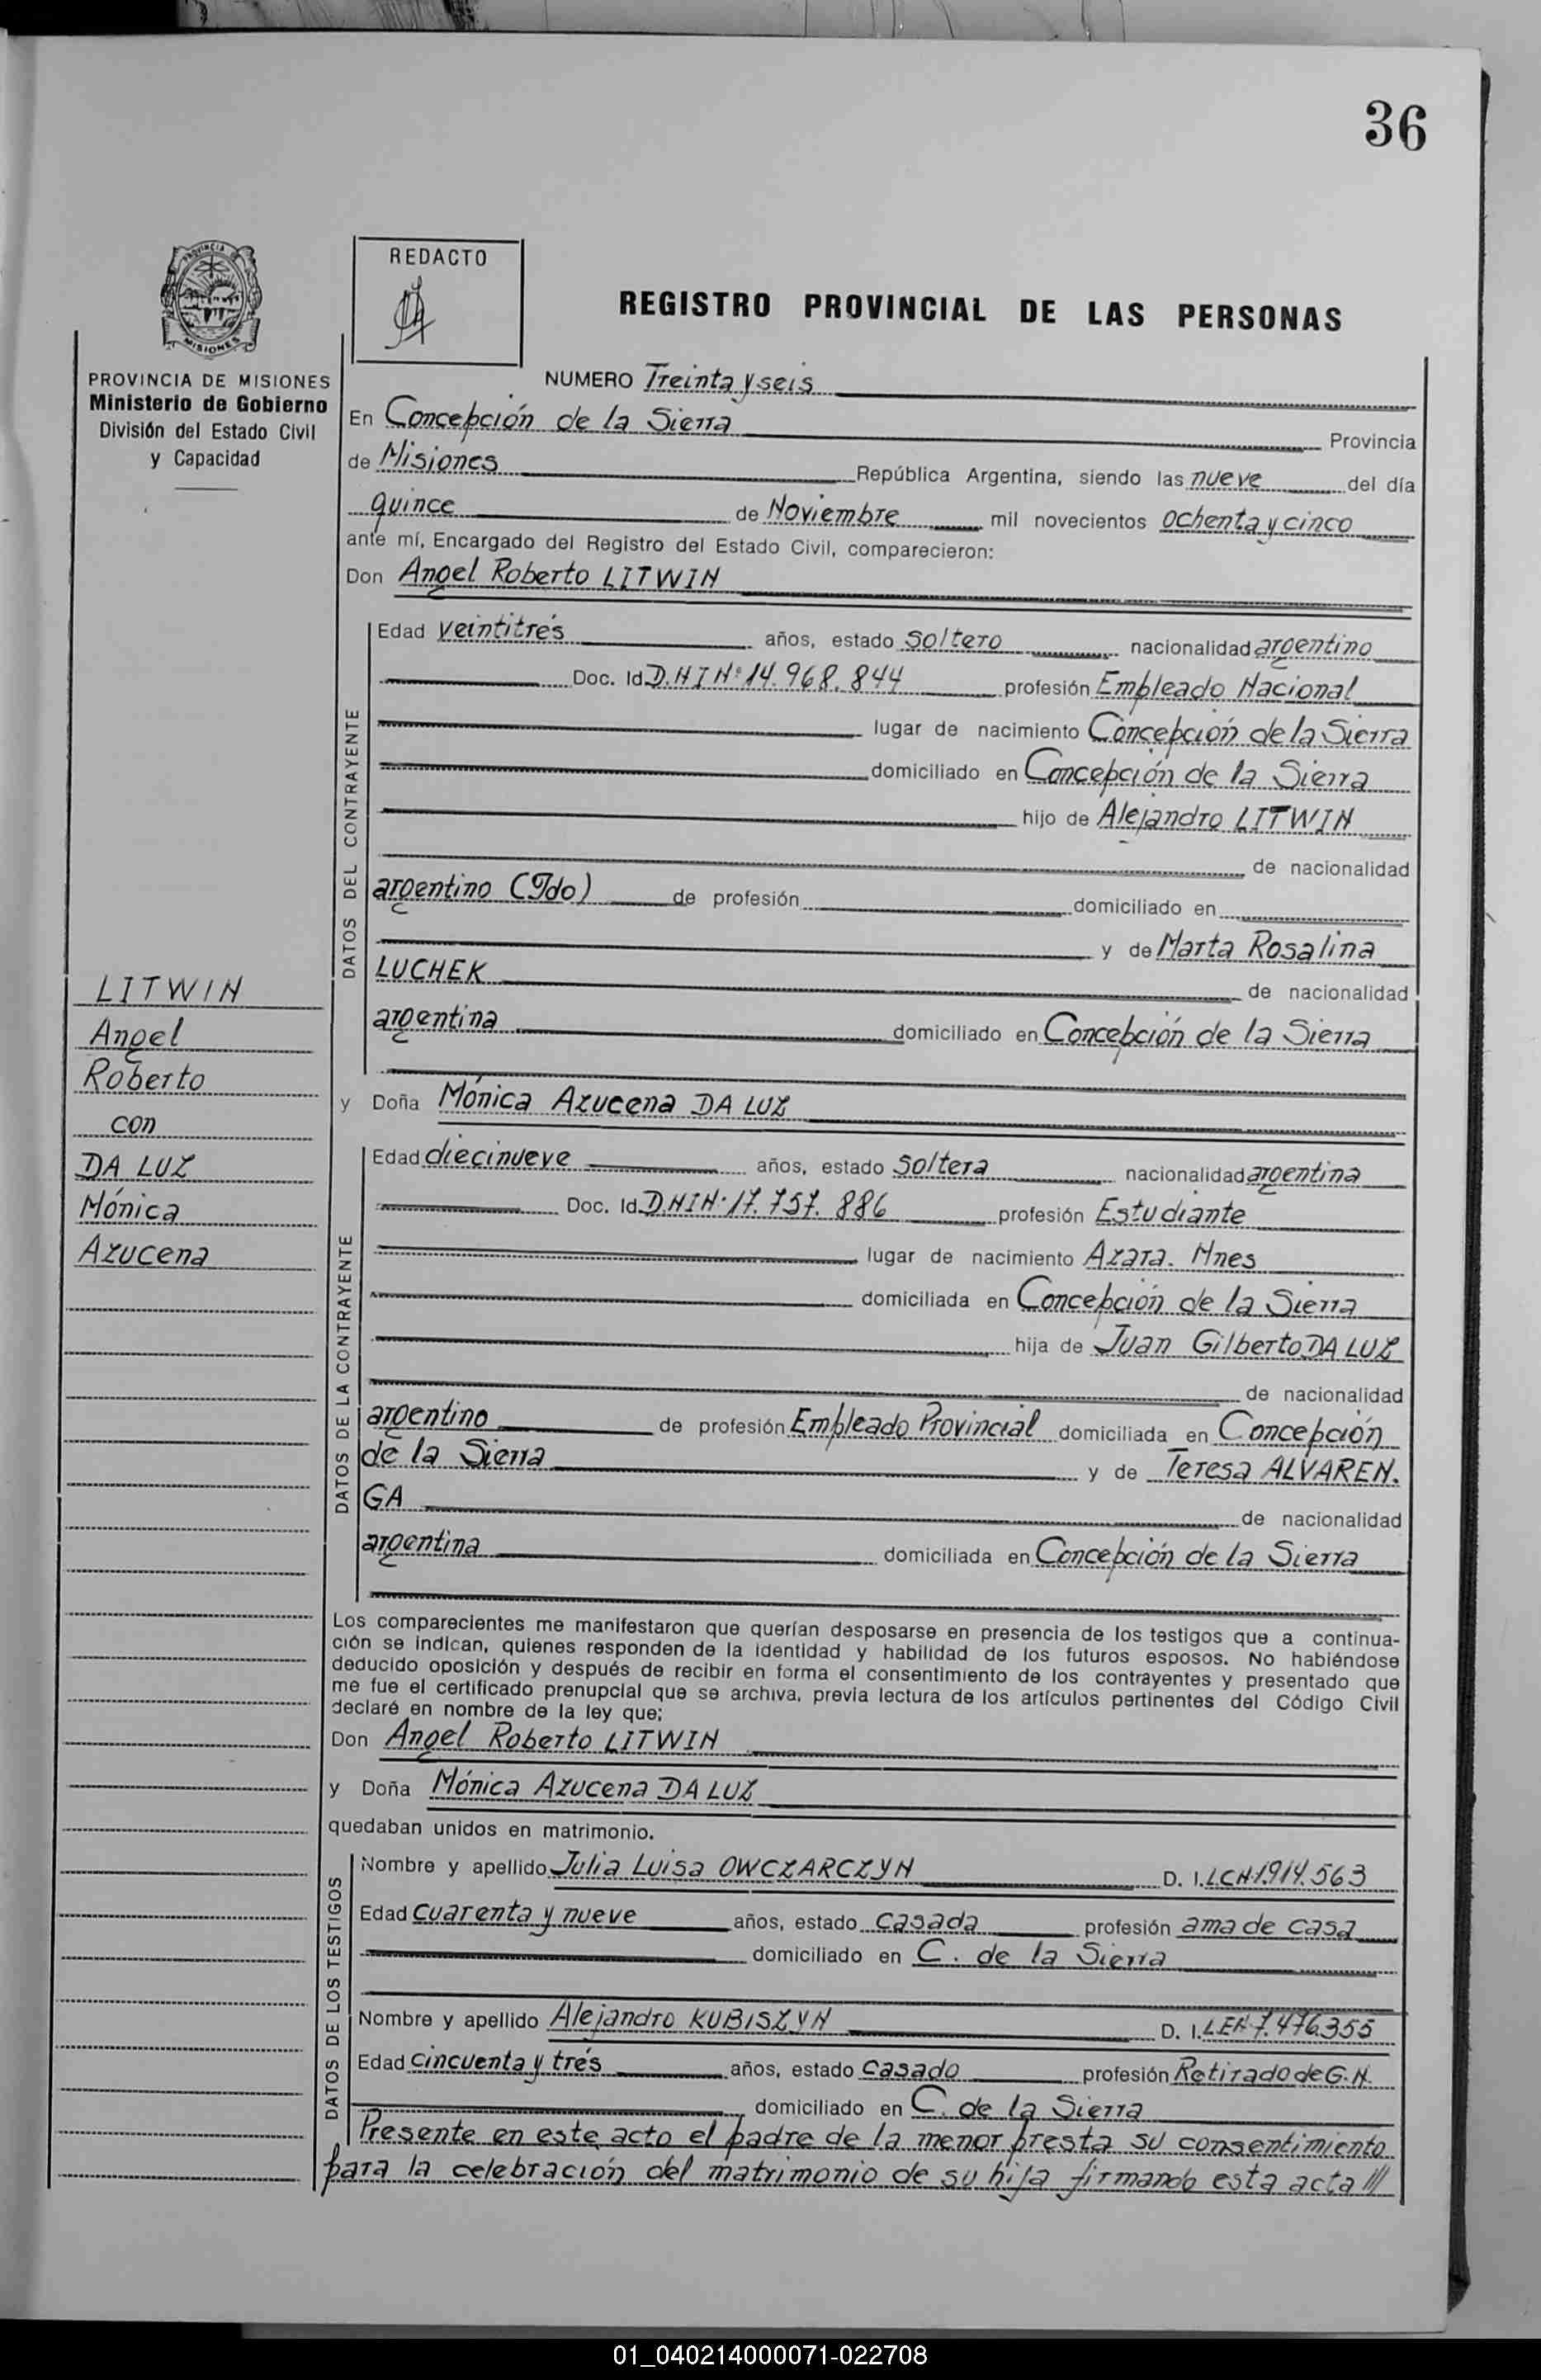 36
PROVINCIA DE
MISIONES
REDACTO
REGISTRO PROVINCIAL DE LAS PERSONAS
PROVINCIA DE MISIONES
Ministerio de Gobierno
División del Estado Civil
y Capacidad
NUMERO Treinta y seis
En Concepción de la Sierra Provincia
de Misiones República Argentina, siendo las nueve del día
quince de Noviembre mil novecientos ochenta y cinco
ante mí, Encargado del Registro del Estado Civil, comparecieron:
Don Angel Roberto LITWIN
DATOS DEL CONTRAYENTE
Edad veintitrés años, estado soltero nacionalidad argentino
Doc. Id D.N I Nº 14.968.844 profesión Empleado Nacional
lugar de nacimiento Concepción de la Sierra
domiciliado en Concepción de la Sierra
hijo de Alejandro LITWIN
de nacionalidad
argentino (Fdo) de profesión domiciliado en
y de Marta Rosalina
LUCHEK de nacionalidad
argentina domiciliado en Concepción de la Sierra
LITWIN
Angel
Roberto
con
DA LUZ
Mónica
Azucena
y Doña Mónica Azucena DA LUZ
DATOS DE LA CONTRAYENTE
Edad diecinueve años, estado soltera nacionalidad argentina
Doc. Id. D.N I N· 17.757.886 profesión Estudiante
lugar de nacimiento Azara. Mnes
domiciliada en Concepción de la Sierra
hija de Juan Gilberto DA LUZ
de nacionalidad
argentino de profesión Empleado Provincial domiciliada en Concepción
de la Sierra y de Teresa ALVAREN.
GA de nacionalidad
argentina domiciliada en Concepción de la Sierra
Los comparecientes me manifestaron que querían desposarse en presencia de los testigos que a continua-
ción se indican, quienes responden de la identidad y habilidad de los futuros esposos. No habiéndose
deducido oposición y después de recibir en forma el consentimiento de los contrayentes y presentado que
me fue el certificado prenupcial que se archiva, previa lectura de los artículos pertinentes del Código Civil
declaré en nombre de la ley que:
Don Angel Roberto LITWIN
y Doña Mónica Azucena DA LUZ
quedaban unidos en matrimonio.
DATOS DE LOS TESTIGOS
Nombre y apellido Julia Luisa OWCZARCZYN D. I. LCN·1.914.563
Edad cuarenta y nueve años, estado casada profesión ama de casa
domiciliado en C. de la Sierra
Nombre y apellido Alejandro KUBISZYN D. I. LEN·7.476.355
Edad cincuenta y trés años, estado casado profesión Retirado de G.N.
domiciliado en C. de la Sierra
Presente en este acto el padre de la menor presta su consentimiento
para la celebración del matrimonio de su hija firmando esta acta ///
01_040214000071-022708